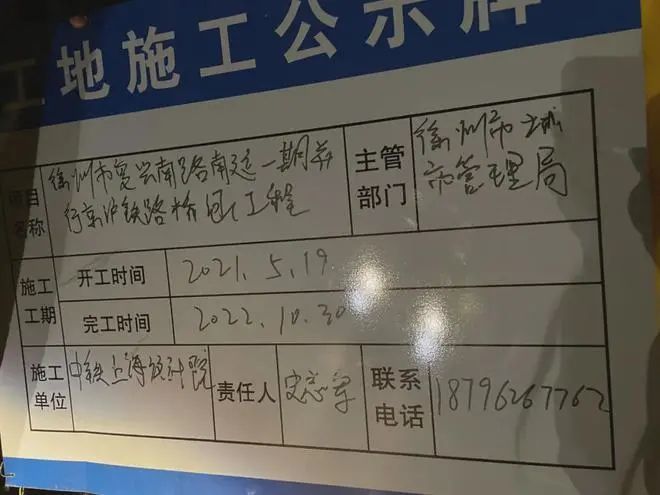 工地施工公示牌
项目名称
徐州市复兴南路南延一期并
行京沪铁路
工程
主管部门
徐州市城
市管理局
施工工期
开工时间
2021.5.19
完工时间
2022.10.30
施工单位
中铁上海设计院
责任人
联系电话
18796267762